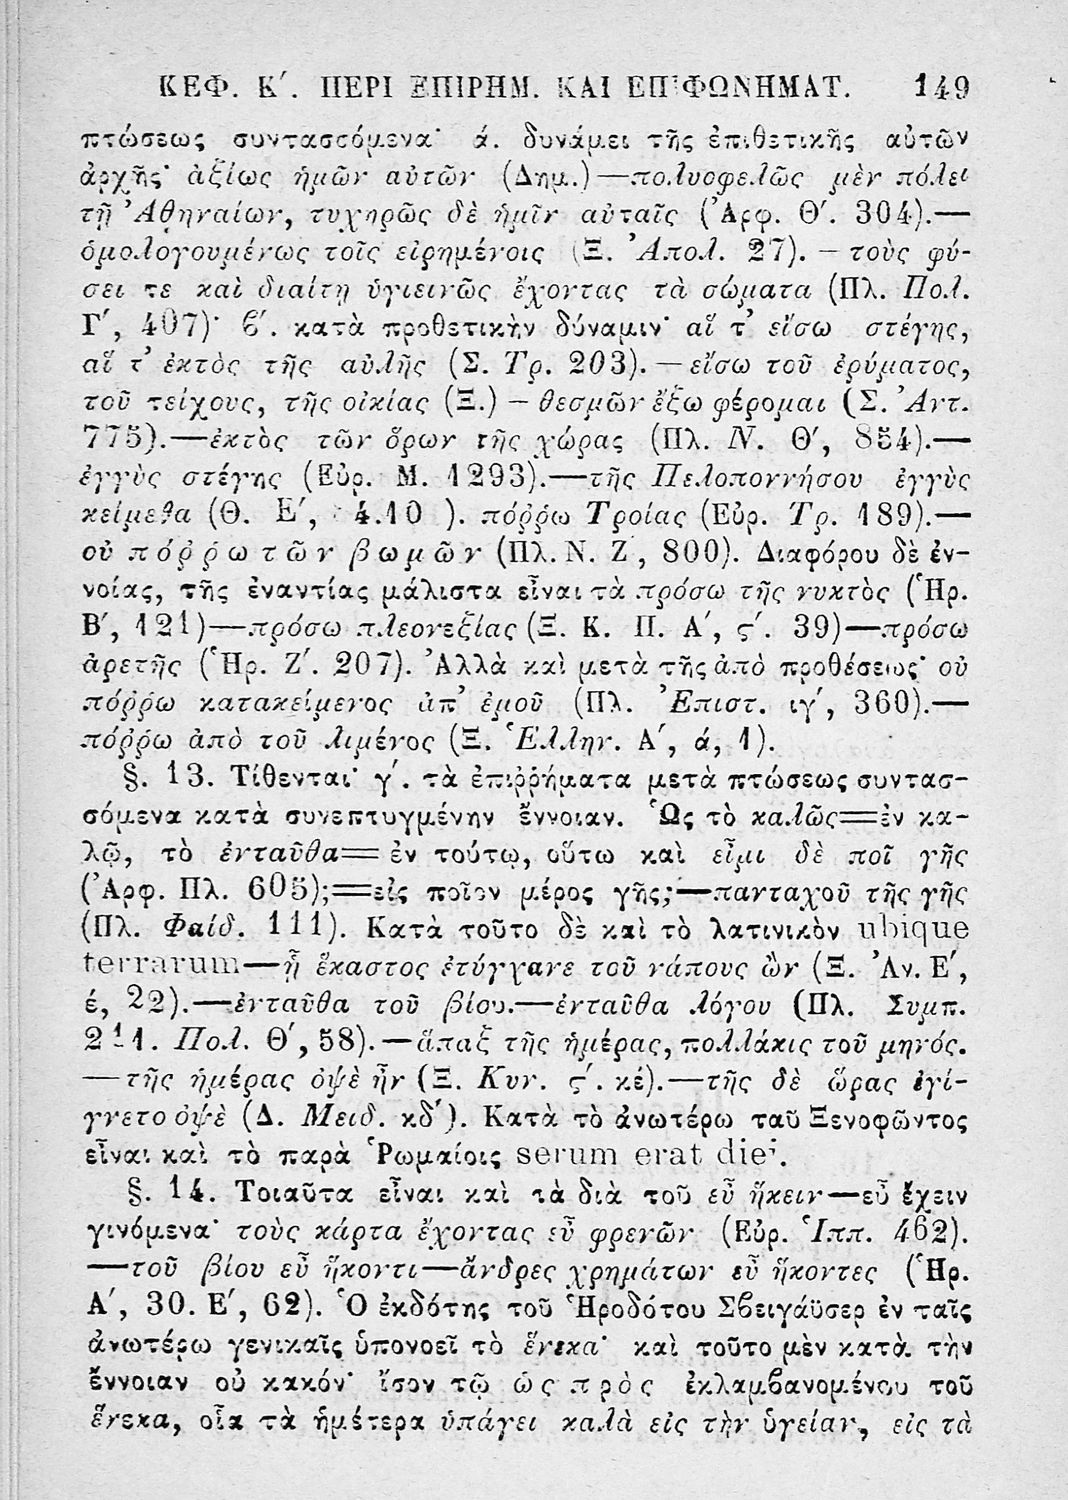 ΚΕΦ. Κ΄. ΠΕΡΙ ΕΠΙΡΗΜ. ΚΑΙ ΕΠΙΦΩΝΗΜΑΤ. 149
πτώσεως συντασσόμενα· ά. δυνάμει τῆς ἐπιθετικῆς αὐτῶν
ἀρχῆς· ἀξίως ἡμῶν αὐτῶν (Δημ.)—πολυοφελῶς μὲν πόλει
τῇ Ἀθηναίων, τυχηρῶς δὲ ἡμῖν αὐταῖς (Ἀρφ. Θ΄. 304).—
ὁμολογουμένως τοῖς εἰρημένοις (Ξ. Ἀπολ. 27). — τοὺς φύ-
σει τε καὶ διαίτῃ ὑγιεινῶς ἔχοντας τὰ σώματα (Πλ. Πολ.
Γ΄, 407)· ϐ΄. κατὰ προθετικὴν δύναμιν· αἵ τ' εἴσω στέγης,
αἵ τ' ἐκτὸς τῆς αὐλῆς (Σ. Τρ. 203). — εἴσω τοῦ ἐρύματος,
τοῦ τείχους, τῆς οἰκίας (Ξ.) — θεσμῶν ἔξω φέρομαι (Σ. Ἀντ.
775).—ἐκτὸς τῶν ὅρων τῆς χώρας (Πλ. Ν. Θ΄, 854).—
ἐγγὺς στέγης (Εὐρ. Μ. 1293).—τῆς Πελοποννήσου ἐγγὺς
κείμεθα (Θ. Ε΄, 4.10 ). πόῤῥω Τροίας (Εὐρ. Τρ. 189).—
οὐ πόῤῥω τῶν βωμῶν (Πλ. Ν. Ζ΄, 800). Διαφόρου δὲ ἐν-
νοίας, τῆς ἐναντίας μάλιστα εἶναι τὰ πρόσω τῆς νυκτὸς (Ἡρ.
Β΄, 121)—πρόσω πλεονεξίας (Ξ. Κ. Π. Α΄, ς΄. 39)—πρόσω
ἀρετῆς (Ἡρ. Ζ΄. 207). Ἀλλὰ καὶ μετὰ τῆς ἀπὸ προθέσεως· οὐ
πόῤῥω κατακείμενος ἀπ' ἐμοῦ (Πλ. Ἐπιστ. ιγ΄, 360).—
πόῤῥω ἀπὸ τοῦ λιμένος (Ξ. Ἑλλην. Α΄, ά, 1).
§. 13. Τίθενται· γ΄. τὰ ἐπιῤῥήματα μετὰ πτώσεως συντασ-
σόμενα κατὰ συνεπτυγμένην ἔννοιαν. Ὡς τὸ καλῶς=ἐν κα-
λῷ, τὸ ἐνταῦθα= ἐν τούτῳ, οὕτω καὶ εἶμι δὲ ποῖ γῆς
(Ἀρφ. Πλ. 605);=εἰς ποῖον μέρος γῆς;—πανταχοῦ τῆς γῆς
(Πλ. Φαίδ. 111). Κατὰ τοῦτο δὲ καὶ τὸ λατινικὸν ubique
terrarum—ᾗ ἕκαστος ἐτύγχανε τοῦ νάπους ὢν (Ξ. Ἀν. Ε΄,
έ, 22).—ἐνταῦθα τοῦ βίου.—ἐνταῦθα λόγου (Πλ. Συμπ.
211. Πολ. Θ΄, 58).—ἅπαξ τῆς ἡμέρας, πολλάκις τοῦ μηνός.
—τῆς ἡμέρας ὀψὲ ἦν (Ξ. Κυν. ς΄. κέ).—τῆς δὲ ὥρας ἐγί-
γνετο ὀψὲ (Δ. Μειδ. κδ΄). Κατὰ τὸ ἀνωτέρω ταῦ Ξενοφῶντος
εἶναι καὶ τὸ παρὰ Ῥωμαίοις serum erat diei.
§. 14. Τοιαῦτα εἶναι καὶ τὰ διὰ τοῦ εὖ ἥκειν—εὖ ἔχειν
γινόμενα· τοὺς κάρτα ἔχοντας εὖ φρενῶν (Εὐρ. Ἱππ. 462).
—τοῦ βίου εὖ ἥκοντι—ἄνδρες χρημάτων εὖ ἥκοντες (Ἡρ.
Α΄, 30. Ε΄, 62). Ὁ ἐκδότης τοῦ Ἡροδότου Σϐειγάϋσερ ἐν ταῖς
ἀνωτέρω γενικαῖς ὑπονοεῖ τὸ ἕνεκα· καὶ τοῦτο μὲν κατὰ τὴν
ἔννοιαν οὐ κακόν· ἴσον τῷ ὡς πρὸς ἐκλαμϐανομένου τοῦ
ἕνεκα, οἷα τὰ ἡμέτερα ὑπάγει καλὰ εἰς τὴν ὑγείαν, εἰς τὰ